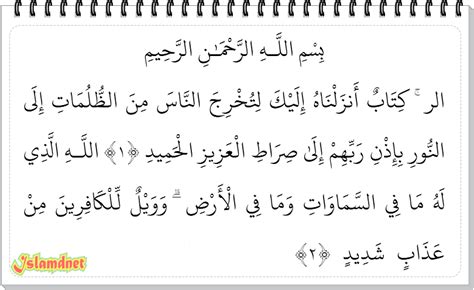 بِسْمِ اللَّـهِ الرَّحْمَـٰنِ الرَّحِيمِ
الر ۚ كِتَابٌ أَنزَلْنَاهُ إِلَيْكَ لِتُخْرِجَ النَّاسَ مِنَ الظُّلُمَاتِ إِلَى
النُّورِ بِإِذْنِ رَبِّهِمْ إِلَىٰ صِرَاطِ الْعَزِيزِ الْحَمِيدِ ﴿١﴾ اللَّـهِ الَّذِي
لَهُ مَا فِي السَّمَاوَاتِ وَمَا فِي الْأَرْضِ ۗ وَوَيْلٌ لِّلْكَافِرِينَ مِنْ
عَذَابٍ شَدِيدٍ ﴿٢﴾
Islamdnet